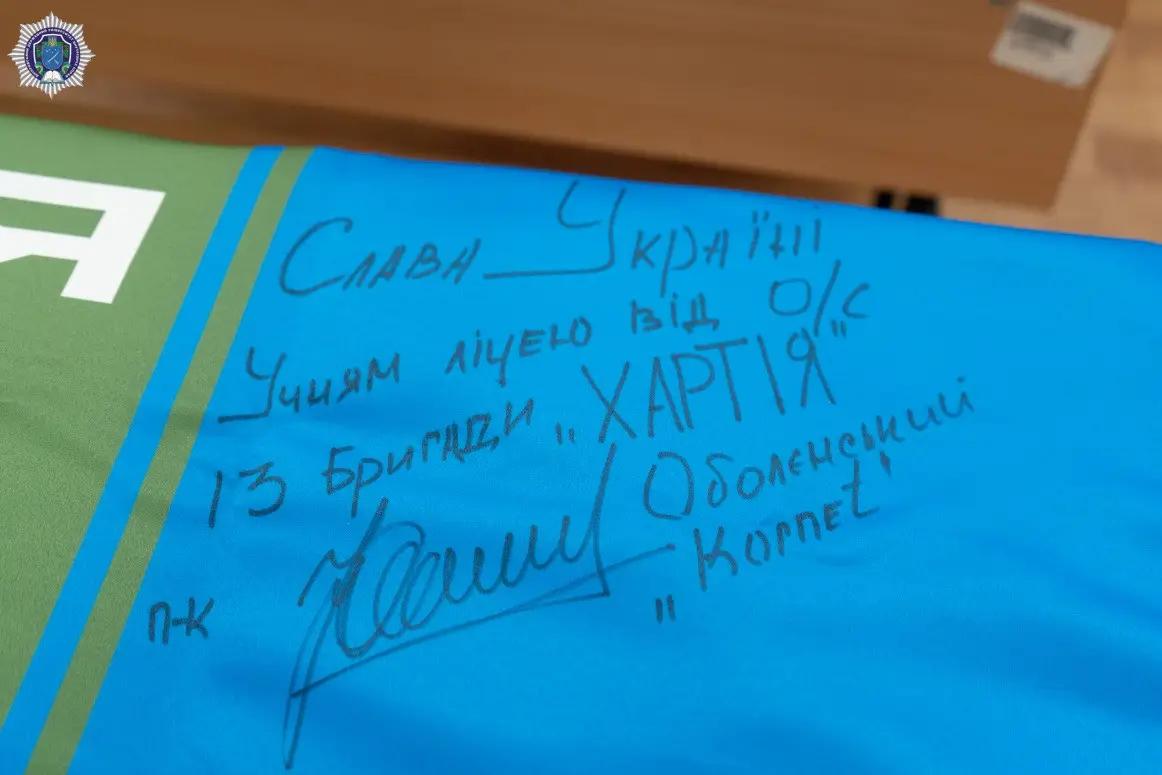 Слава Україні
Учням ліцею від О/С
13 Бригади „ХАРТІЯ"
Оболенський
п-к „Kornet"
Я